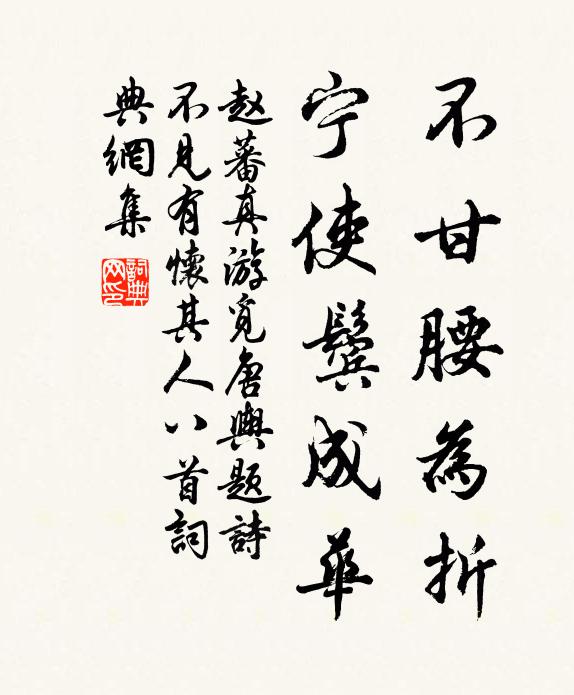 不甘腰為折
宁使鬓成華
赵蕃真游覓唐輿题詩
不見有懷其人八首詞
典網集
詞典网印